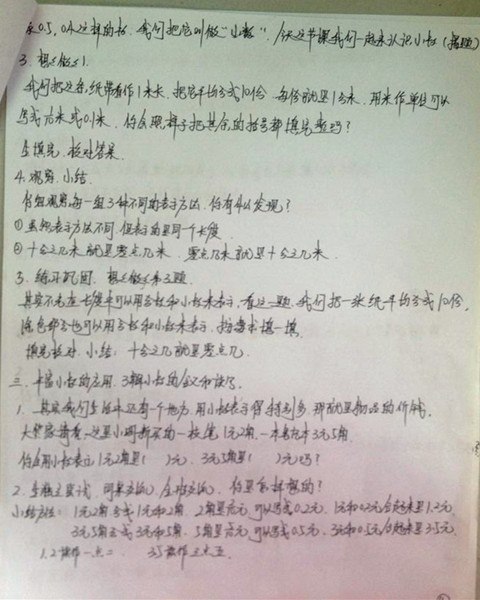 像0.5, 0.4这样的数, 我们把它叫做“小数”. 今天这节课我们一起来认识小数 (揭题)
3. 想想做做1.
我们把这条纸带看作1米长, 把它平均分成10份, 每份就是1分米, 用米作单位可以
写成 米或0.1米. 你会照样子把其余的括号都填完整吗?
生填完, 核对答案.
4. 观察, 小结.
仔细观察每一组3种不同的表示方法, 你有什么发现?
① 虽然表示方法不同, 但表示的是同一个长度.
② 十分之几米就是零点几米, 零点几米就是十分之几米
5. 练习巩固. 想想做做第2题
其实不光在长度中可以用分数和小数来表示, 看这一题. 我们把一张纸平均分成10份,
涂色部分也可以用分数和小数来表示, 打开书填一填.
填完核对. 小结: 十分之几就是零点几
三. 丰富小数的应用, 了解小数的含义和读写.
1. 其实我们生活中还有一个地方, 用小数表示得特别多, 那就是物品的价钱.
大家请看, 这里小明新买的一枝笔1元2角, 一本笔记本3元5角.
你会用小数表示1元2角是( )元, 3元5角是( )元吗?
2. 生独立尝试, 同桌交流, 全班交流, 你是怎样想的?
小结方法: 1元2角分成1元和2角, 2角是 元, 可以写成0.2元, 1元和0.2元合起来是1.2元.
3元5角分成3元和5角. 5角是 元, 可以写成0.5元, 3元和0.5元合起来是3.5元.
1.2读作一点二 3.5读作三点五.